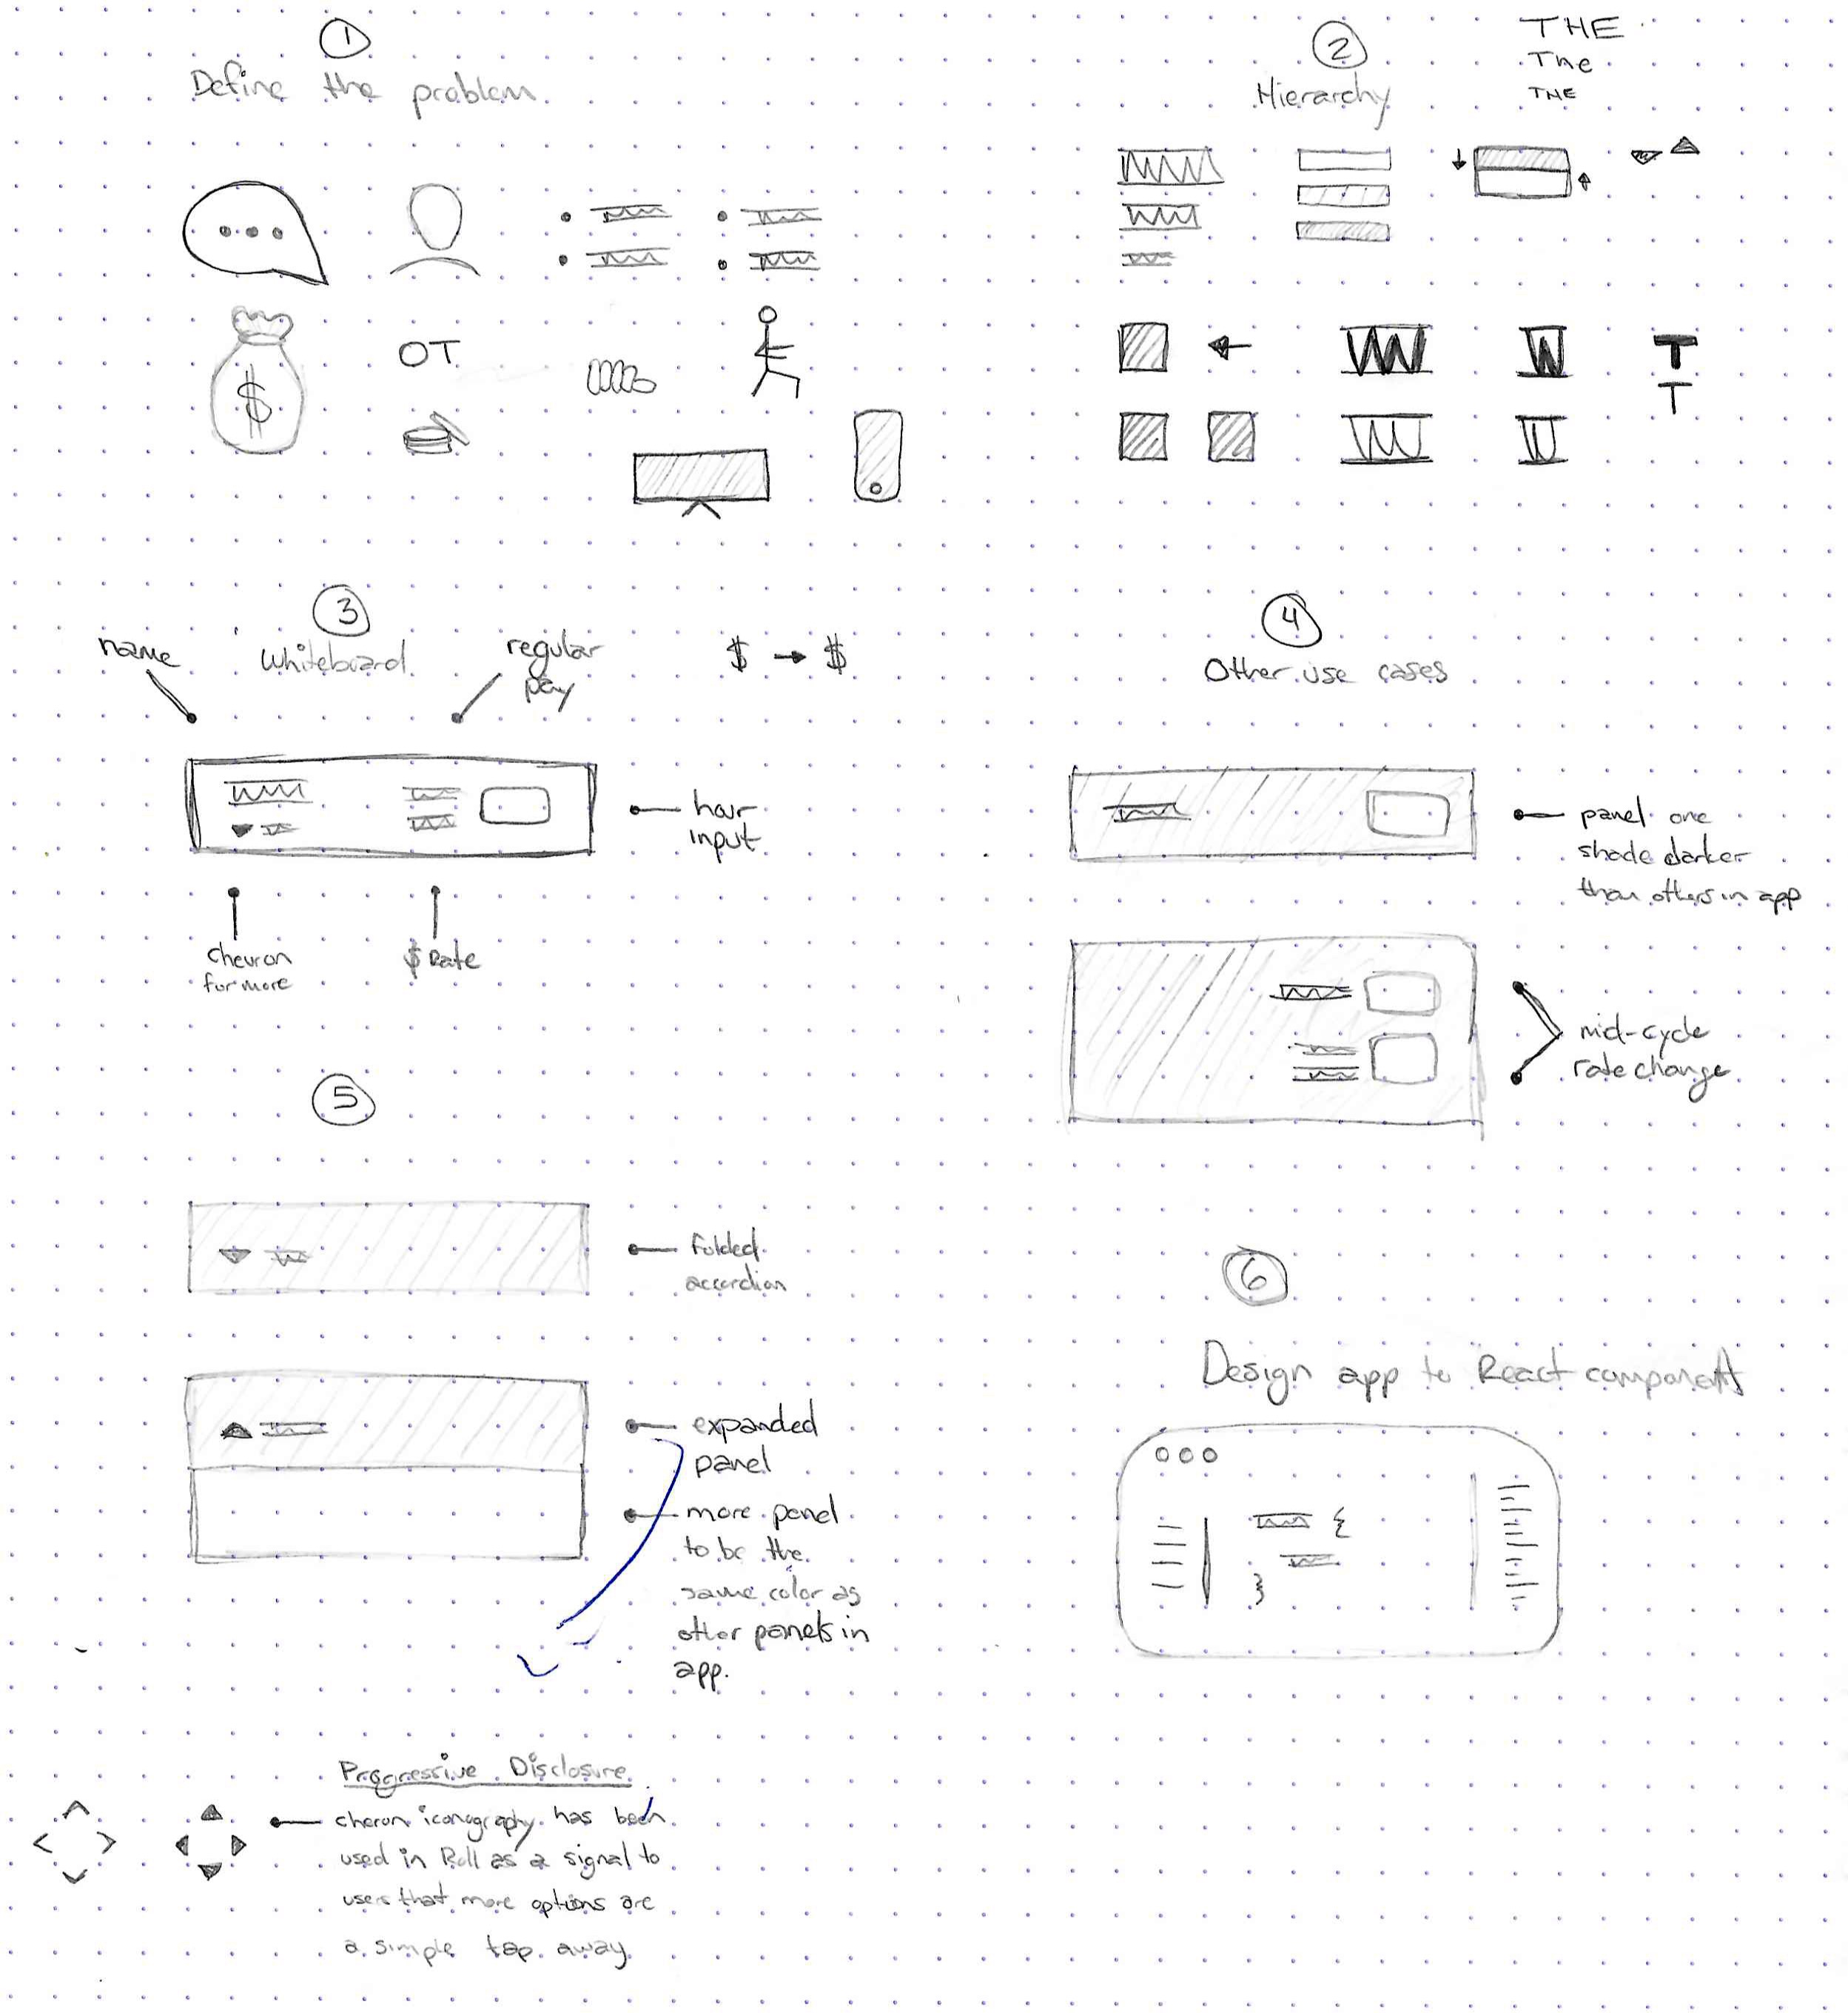 1
Define the problem
2
Hierarchy
THE
The
THE
$
OT
T
T
3
Whiteboard
name
regular
pay
$ → $
hour
input
chevron
for more
$ Rate
4
Other use cases
panel one
shade darker
than others in app
mid-cycle
rate change
5
folded
accordian
expanded
panel
more panel
to be the
same color as
other panels in
app.
6
Design app to React component
{
}
Progressive Disclosure
cheron iconography has been
used in Roll as a signal to
users that more options are
a simple tap away